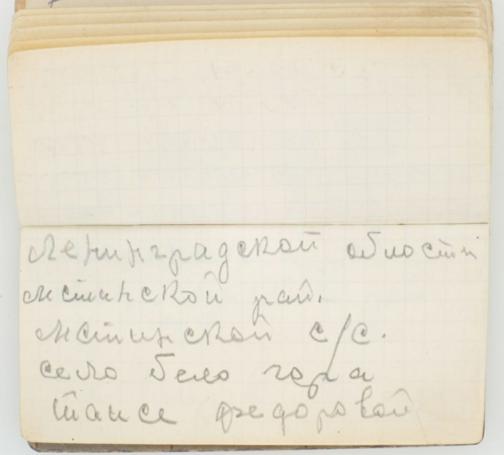 Ленинградской области
Мстинской рай.
Мстинской с/с.
село бело гора
Тансе федоровой